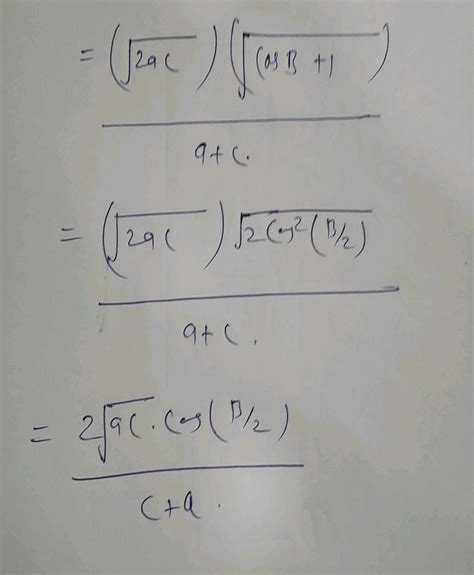 = (√2ac) (√cosB + 1)
a+c.
= (√2ac) √2cos²(B/2)
a+c.
= 2√ac . cos(B/2)
c+a.